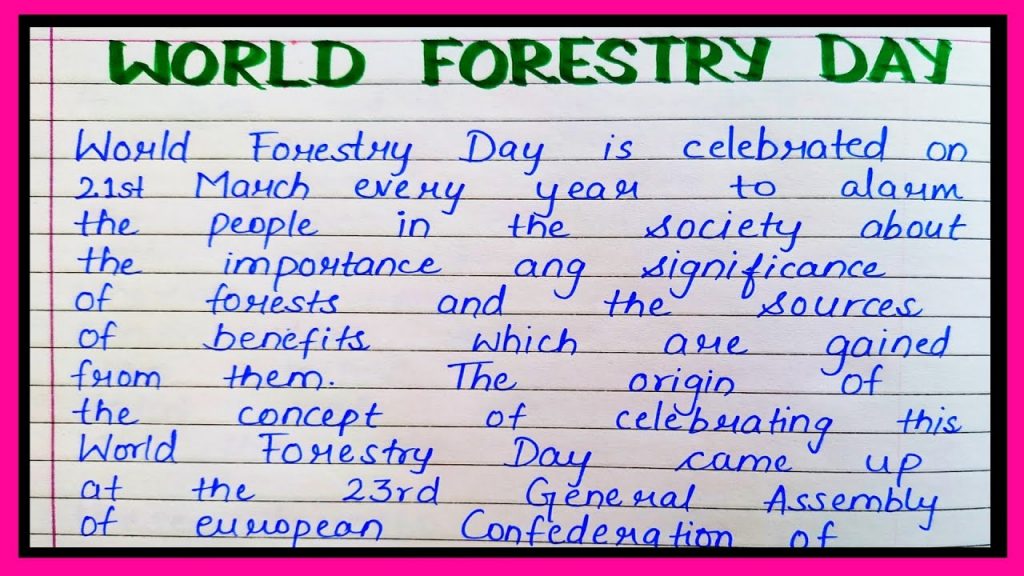 WORLD FORESTRY DAY
World Forestry Day is celebrated on
21st March every year to alarm
the people in the society about
the importance ang significance
of forests and the sources
of benefits which are gained
from them. The origin of
the concept of celebrating this
World Forestry Day came up
at the 23rd General Assembly
of european Confederation of